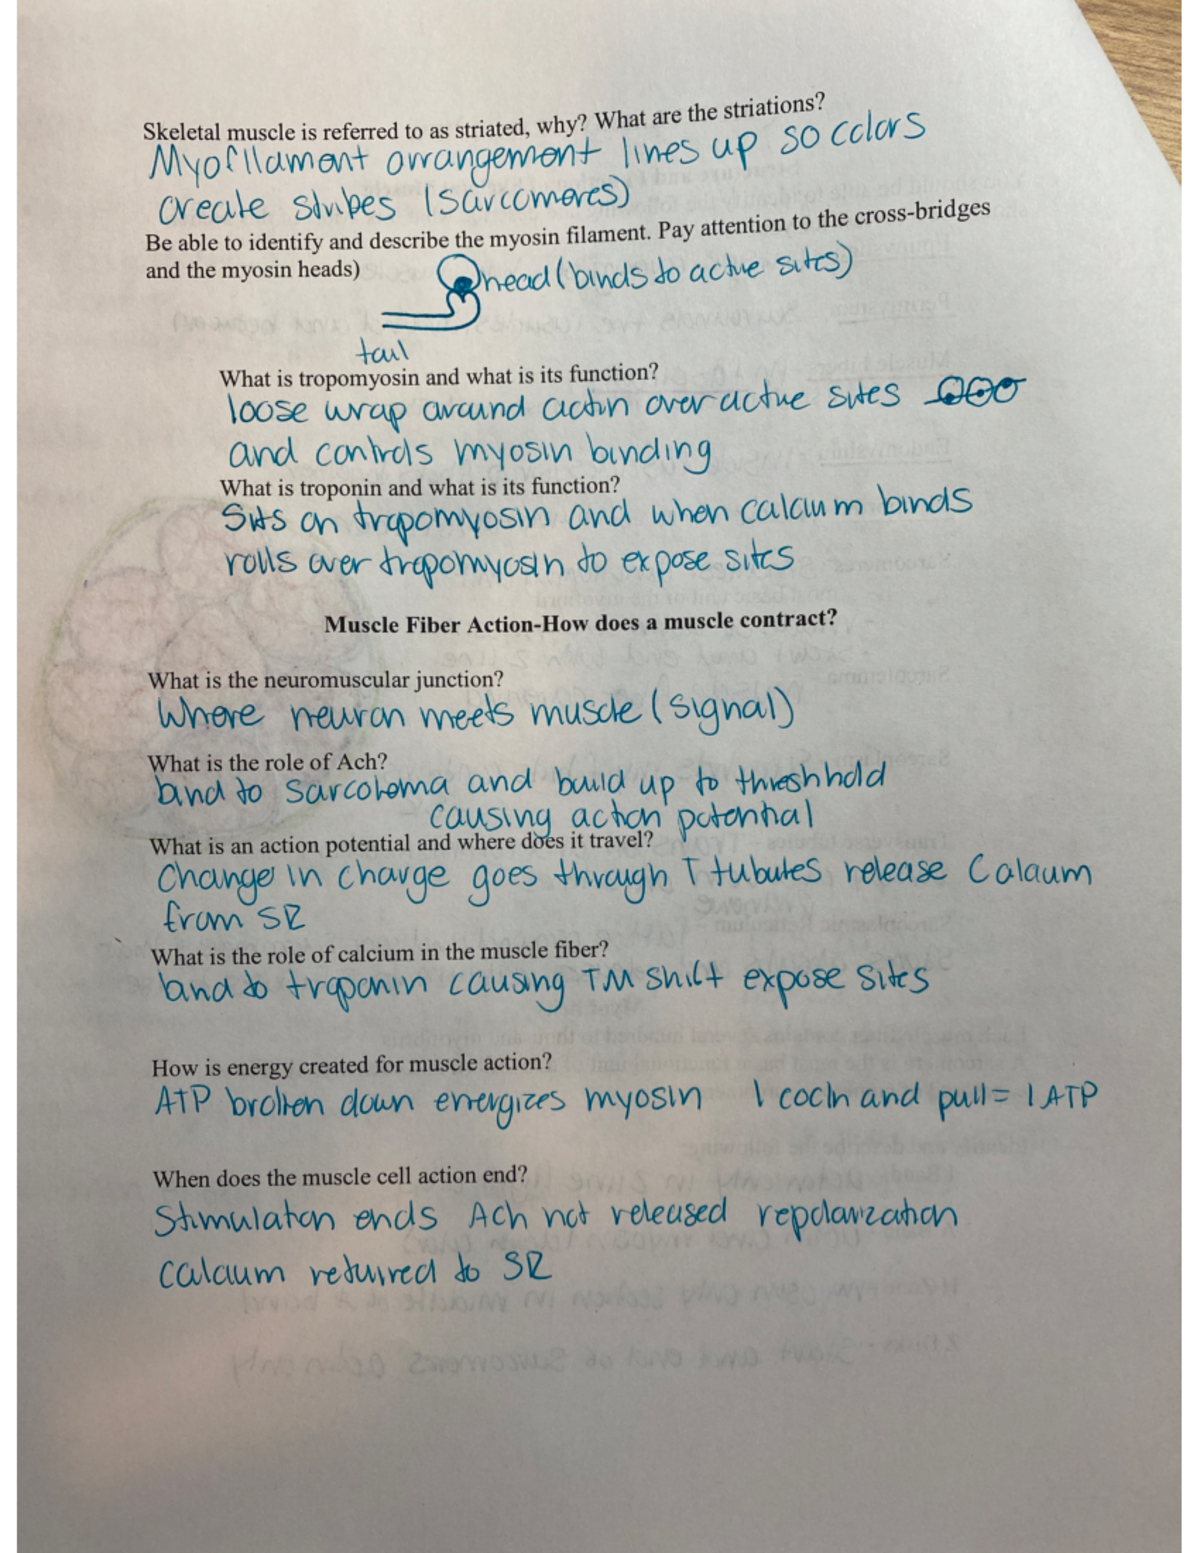 Skeletal muscle is referred to as striated, why? What are the striations?
Myofilament arrangement lines up so colors
create stripes (sarcomeres)
Be able to identify and describe the myosin filament. Pay attention to the cross-bridges
and the myosin heads)
head (binds to active sites)
tail
What is tropomyosin and what is its function?
loose wrap around actin over active sites
and controls myosin binding
What is troponin and what is its function?
Sits on tropomyosin and when calcium binds
rolls over tropomyosin to expose sites
Muscle Fiber Action-How does a muscle contract?
What is the neuromuscular junction?
Where neuron meets muscle (signal)
What is the role of Ach?
bind to sarcolema and build up to threshhold
causing action potential
What is an action potential and where does it travel?
Change in charge goes through T tubules release Calcium
from SR
What is the role of calcium in the muscle fiber?
bind to troponin causing TM shift expose sites
How is energy created for muscle action?
ATP broken down energizes myosin 1 cock and pull = 1 ATP
When does the muscle cell action end?
Stimulation ends ACh not released repolarization
calcium returned to SR